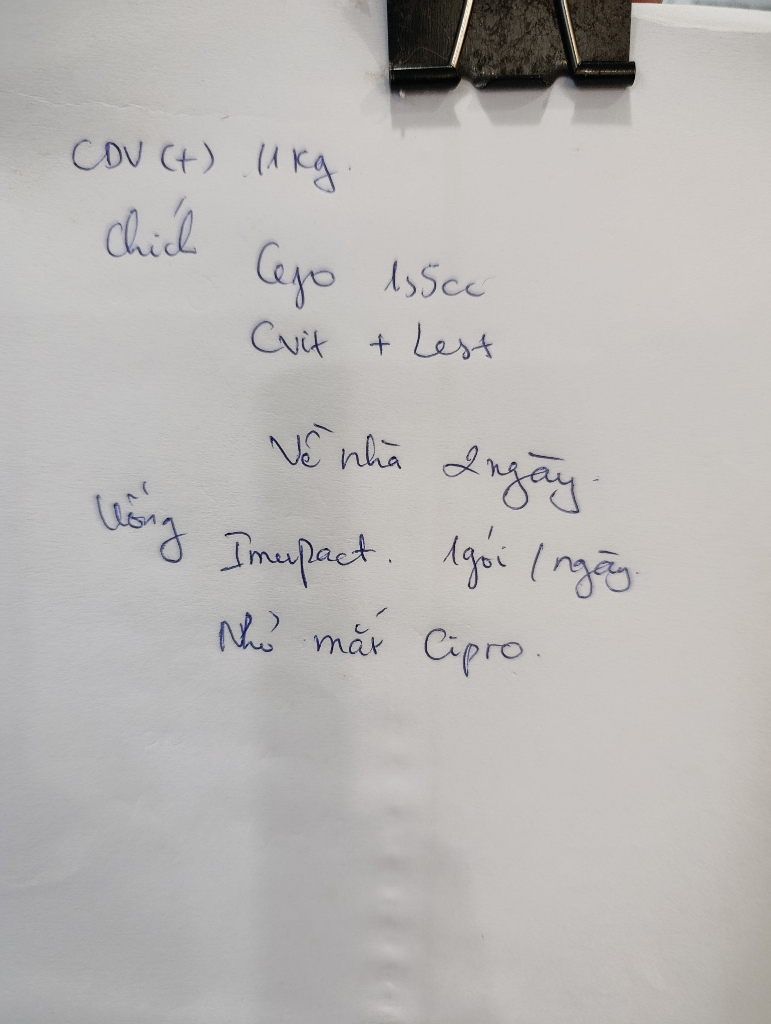 CDV (+) 11 kg.
Chích Cefo 1,5cc
Cvit + Lest
Về nhà 2 ngày.
Uống Imupact. 1 gói / ngày.
Nhỏ mắt Cipro.